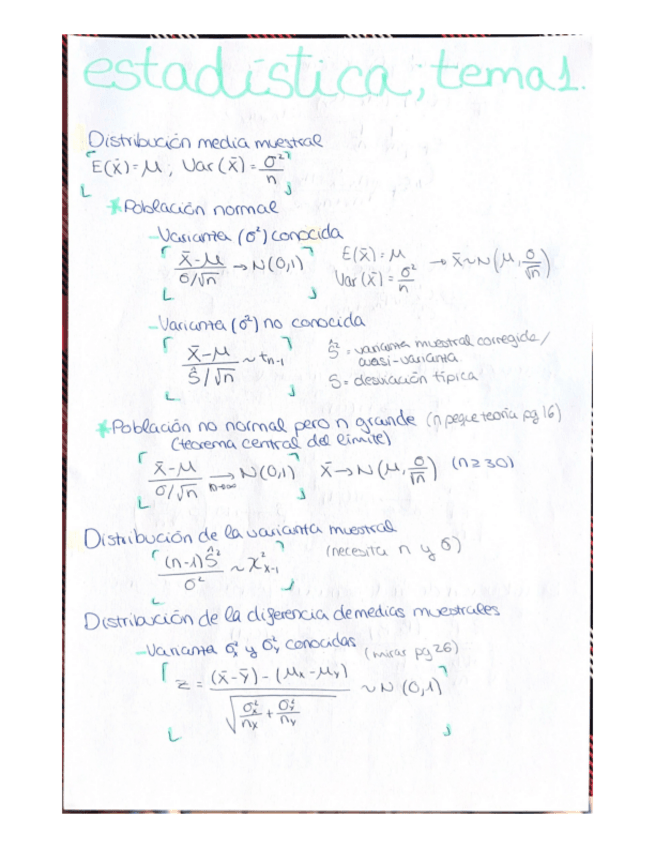 estadística; tema 1.
Distribución media muestral
E(x̄)=μ; Var(x̄)=σ²/n
*Población normal
-Varianza (σ²) conocida
(x̄-μ)/(σ/√n) → N(0,1) E(x̄)=μ Var(x̄)=σ²/n → x̄~N(μ, σ/√n)
-Varianza (σ²) no conocida
(x̄-μ)/(Ŝ/√n) ~ tn-1 Ŝ² = varianza muestral corregida/
cuasi-varianza
S= desviación típica
*Población no normal pero n grande (n peque teoría pg 16)
(teorema central del límite)
(x̄-μ)/(σ/√n) →n→∞ N(0,1) x̄→N(μ, σ/√n) (n≥30)
Distribución de la varianza muestral
(n-1)Ŝ²/σ² ~ χ²x-1 (necesita n y σ)
Distribución de la diferencia de medias muestrales
-Varianza σx² y σy² conocidas (mirar pg 26)
z = ((x̄-ȳ)-(μx-μy))/√(σx²/nx + σy²/ny) ~ N(0,1)